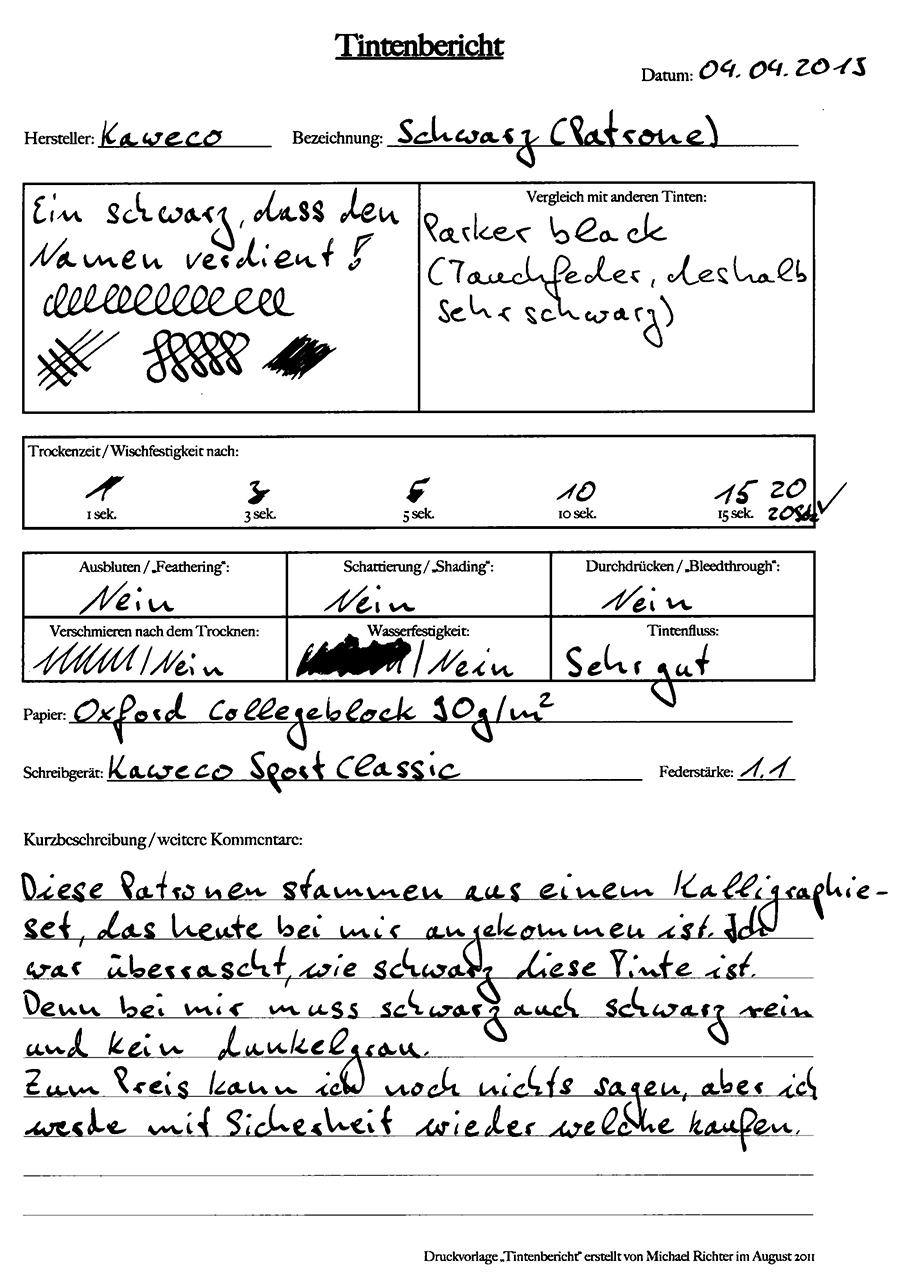 Tintenbericht
Datum: 04.04.2015
Hersteller: Kaweco Bezeichnung: Schwarz (Patrone)
Ein schwarz, dass den
Namen verdient!
Vergleich mit anderen Tinten:
Parker black
(Tauchfeder, deshalb
sehr schwarz)
Trockenzeit / Wischfestigkeit nach:
1 3 5 10 15 20
1 sek. 3 sek. 5 sek. 10 sek. 15 sek. 20sek ✓
Ausbluten / „Feathering“: Schattierung / „Shading“: Durchdrücken / „Bleedthrough“:
Nein Nein Nein
Verschmieren nach dem Trocknen: Wasserfestigkeit: Tintenfluss:
/ Nein / Nein Sehr gut
Papier: Oxford Collegeblock 90g/m²
Schreibgerät: Kaweco Sport Classic Federstärke: 1.1
Kurzbeschreibung / weitere Kommentare:
Diese Patronen stammen aus einem Kalligraphie-
set, das heute bei mir angekommen ist. Ich
war überrascht, wie schwarz diese Tinte ist.
Denn bei mir muss schwarz auch schwarz sein
und kein dunkelgrau.
Zum Preis kann ich noch nichts sagen, aber ich
werde mit Sicherheit wieder welche kaufen.
Druckvorlage „Tintenbericht“ erstellt von Michael Richter im August 2011